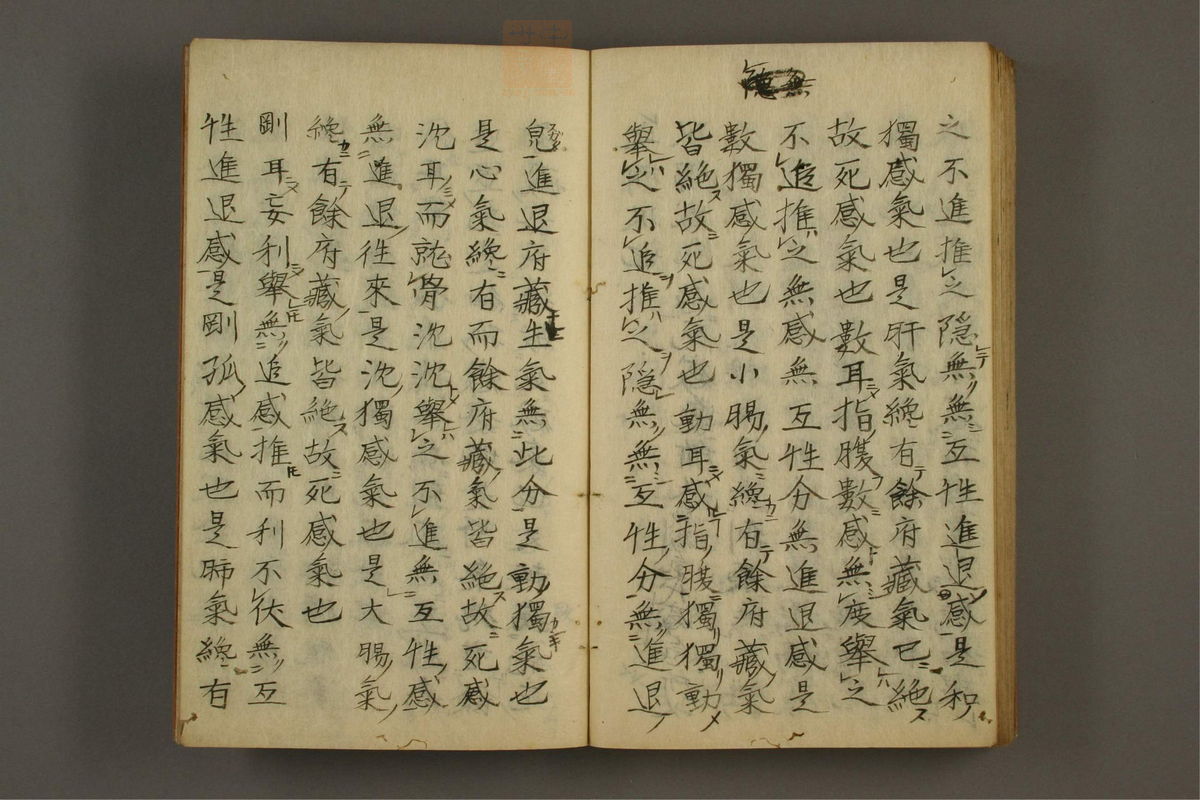 之不進推之隠無無互性進退感是和
獨感氣也是肝氣纔有餘府藏氣已絕
故死感氣也數耳指腠數感無度舉之
不追推之無感無互性分無進退感是
數獨感氣也是小腸氣纔有餘府藏氣
皆絕故死感氣也動耳感指腠獨獨動
舉之不追推之隠無無互性分無進退
進退府藏生氣無此分是動獨氣也
是心氣纔有而餘府藏氣皆絕故死感
沈耳而就骨沈沈舉之不進無互性感
無進退往來是沈獨感氣也是大腸氣
纔有餘府藏氣皆絕故死感氣也
剛耳妄利舉無追感推而利不伏無互
性進退感是剛孤感氣也是肺氣纔有